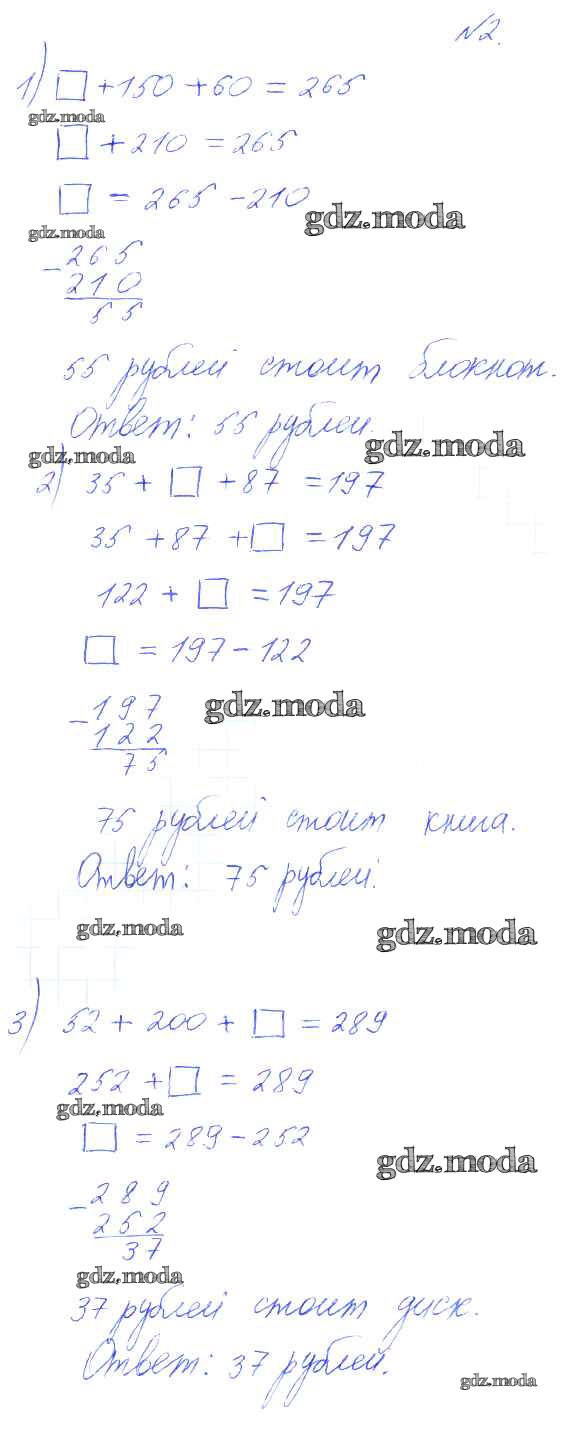 №2.
1) □ + 150 + 60 = 265
gdz.moda
□ + 210 = 265
□ = 265 - 210
gdz.moda
gdz.moda
- 265
210
55
55 рублей стоит блокнот.
Ответ: 55 рублей.
gdz.moda
gdz.moda
2) 35 + □ + 87 = 197
35 + 87 + □ = 197
122 + □ = 197
□ = 197 - 122
- 197
gdz.moda
122
75
75 рублей стоит книга.
Ответ: 75 рублей.
gdz.moda
gdz.moda
3) 52 + 200 + □ = 289
252 + □ = 289
gdz.moda
□ = 289 - 252
gdz.moda
- 289
252
37
gdz.moda
37 рублей стоит диск.
Ответ: 37 рублей.
gdz.moda